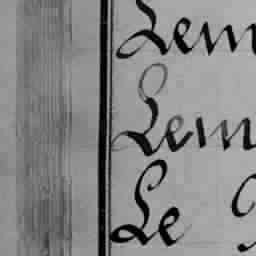 Lem
Lem
Le